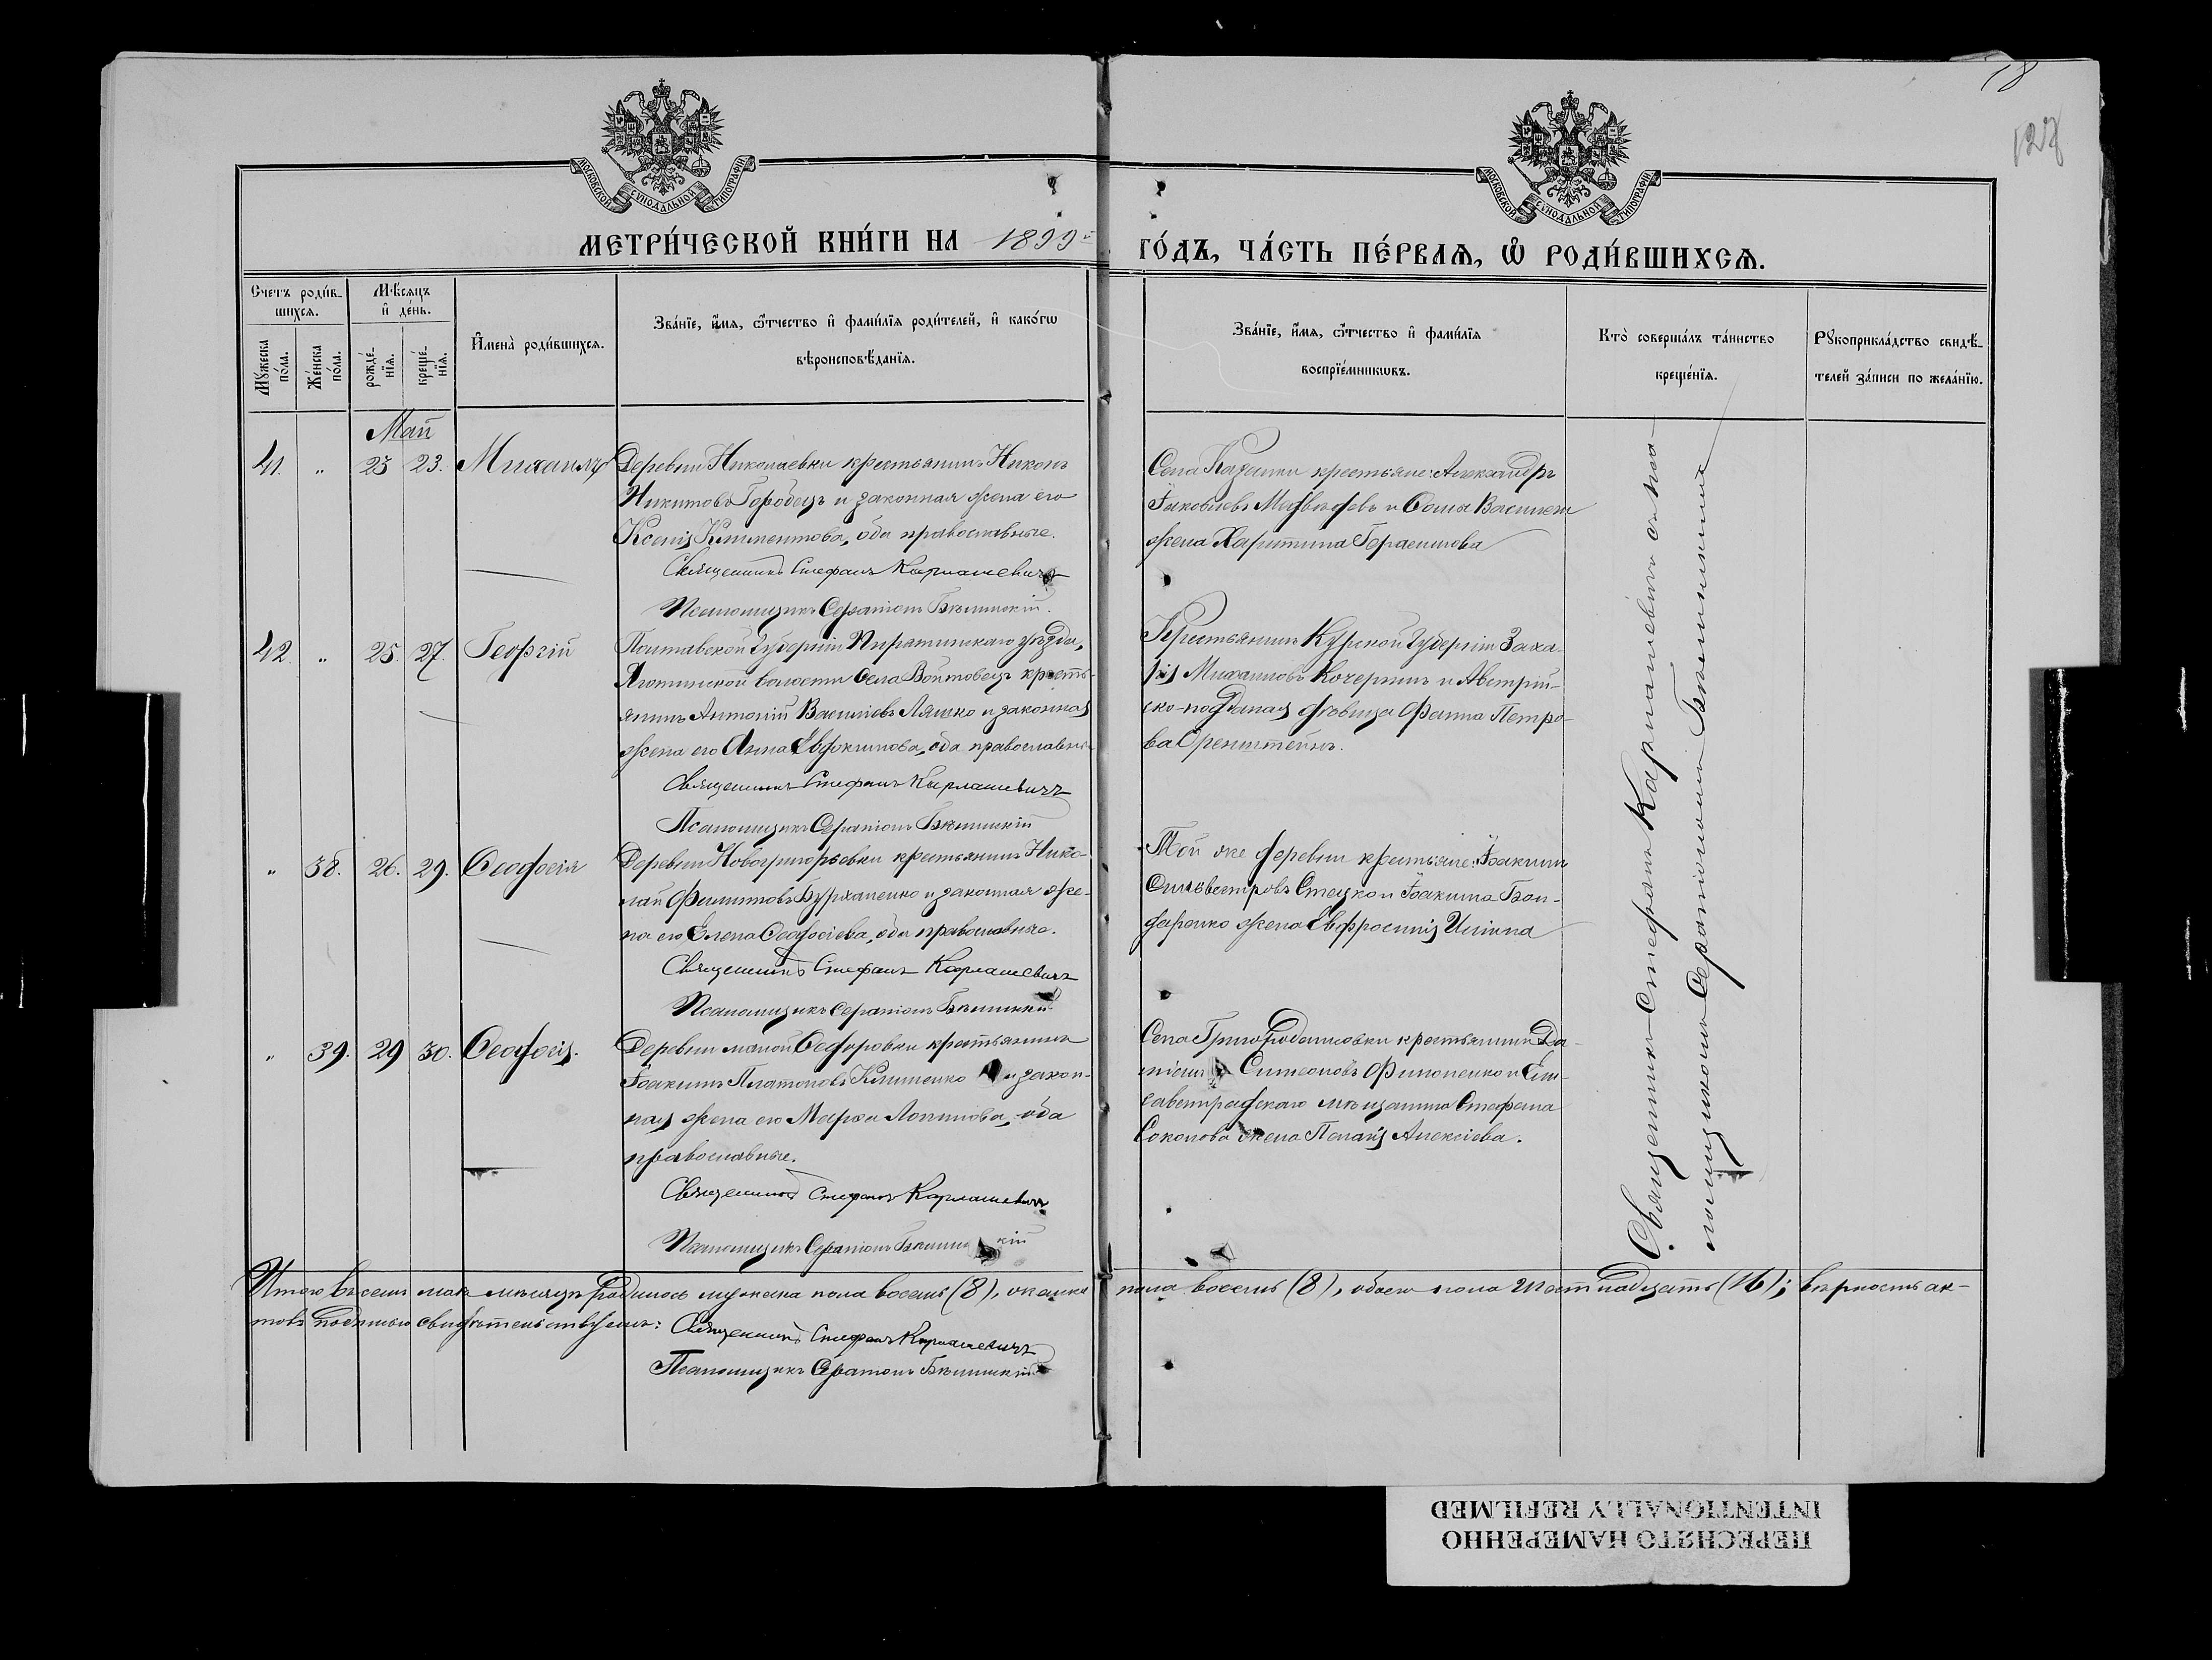 18
127
МОСКОВСКОЙ СѴНОДАЛЬНОЙ ТИПОГРАФІИ
МОСКОВСКОЙ СѴНОДАЛЬНОЙ ТИПОГРАФІИ
МЕТРИ́ЧЕСКОЙ КНИ́ГИ НА 1899й ГО́ДЪ, ЧА́СТЬ ПЕ́РВАѦ, Ѡ҆ РОДИ́ВШИХСѦ.
Счетъ роди́в-
шихсѧ.
Мꙋ́жеска по́ла.
Же́нска по́ла.
Мѣ́сѧцъ
и҆ де́нь.
рожде́-
нїѧ.
креще́-
нїѧ.
И҆мена̀ роди́вшихсѧ.
Зва́нїе, и҆́мѧ, ѻ҆́тчество и҆ фами́лїѧ роди́телей, и҆ како́гѡ
вѣроисповѣ́данїѧ.
Зва́нїе, и҆́мѧ, ѻ҆́тчество и҆ фами́лїѧ
воспрїе́мникѡвъ.
Кто̀ соверша́лъ та́инство
креще́нїѧ.
Рꙋкоприкла́дство свидѣ́-
телей за́писи по жела́нїю.
Май
41. " 23 23. Михаилъ
Деревни Николаевки крестьянинъ Никонъ
Никитовъ Городецъ и законная жена его
Ксенія Климентова, оба православные.
Священникъ Стефанъ Карпашевичъ
Псаломщикъ Серапіонъ Бѣлинскій.
Села крестьяне: Александръ
Іаковлевъ Медвѣдевъ и Василева
жена Харитина Герасимова
42. " 25. 27. Георгій
Полтавской Губерніи Пирятинскаго уѣзда,
Яготинской волости Села Войтовецъ кресть-
янинъ Антоній Василіевъ Ляшко и законная
жена его Анна Евдокимова, оба православные
Священникъ Стефанъ Карпашевичъ
Псаломщикъ Серапіонъ Бѣлинскій
Крестьянинъ Курской Губерніи Заха-
рія Михаиловъ Кочергинъ и Австрій-
ско-подданая дѣвица Фанна Петро-
ва Оренштейнъ.
" 38. 26. 29. Ѳеодосія
Деревни Новогригорьевки крестьянинъ Нико-
лай Филипповъ Бурханенко и законная же-
на его Елена Ѳеодосіева, оба православные.
Священникъ Стефанъ Карпашевичъ
Псаломщикъ Серапіонъ Бѣлинскій
Той же деревни крестьяне: Іоакимъ
Сильвестровъ Стецко и Іоакима Бон-
даренко жена Евфросинія Илінна
" 39. 29 30. Ѳеодосія.
Деревни малой Ѳедоровки крестьянинъ
Іоакимъ Платоновъ Клименко и закон-
ная жена его Марѳа Логинова, оба
православные.
Священникъ Стефанъ Карпашевичъ
Псаломщикъ Серапіонъ Бѣлинскій
Села крестьянинъ Да-
ніилъ Симеоновъ Филоненко и Ели-
саветградскаго мѣщанина Стефана
Соколова жена Пелагія Алексіева.
Священникъ Стефанъ Карпашевичъ съ пса-
ломщикомъ Серапіономъ Бѣлинскимъ
Итого въ семъ маѣ мѣсяцѣ родилось мужеска пола восемь (8), женска пола восемь (8), обоего пола шестнадцать (16); вѣрность ак-
товъ подписью свидѣтельствуемъ: Священникъ Стефанъ Карпашевичъ
Псаломщикъ Серапіонъ Бѣлинскій
ПЕРЕСНЯТО НАМЕРЕННО
INTENTIONALLY REFILMED